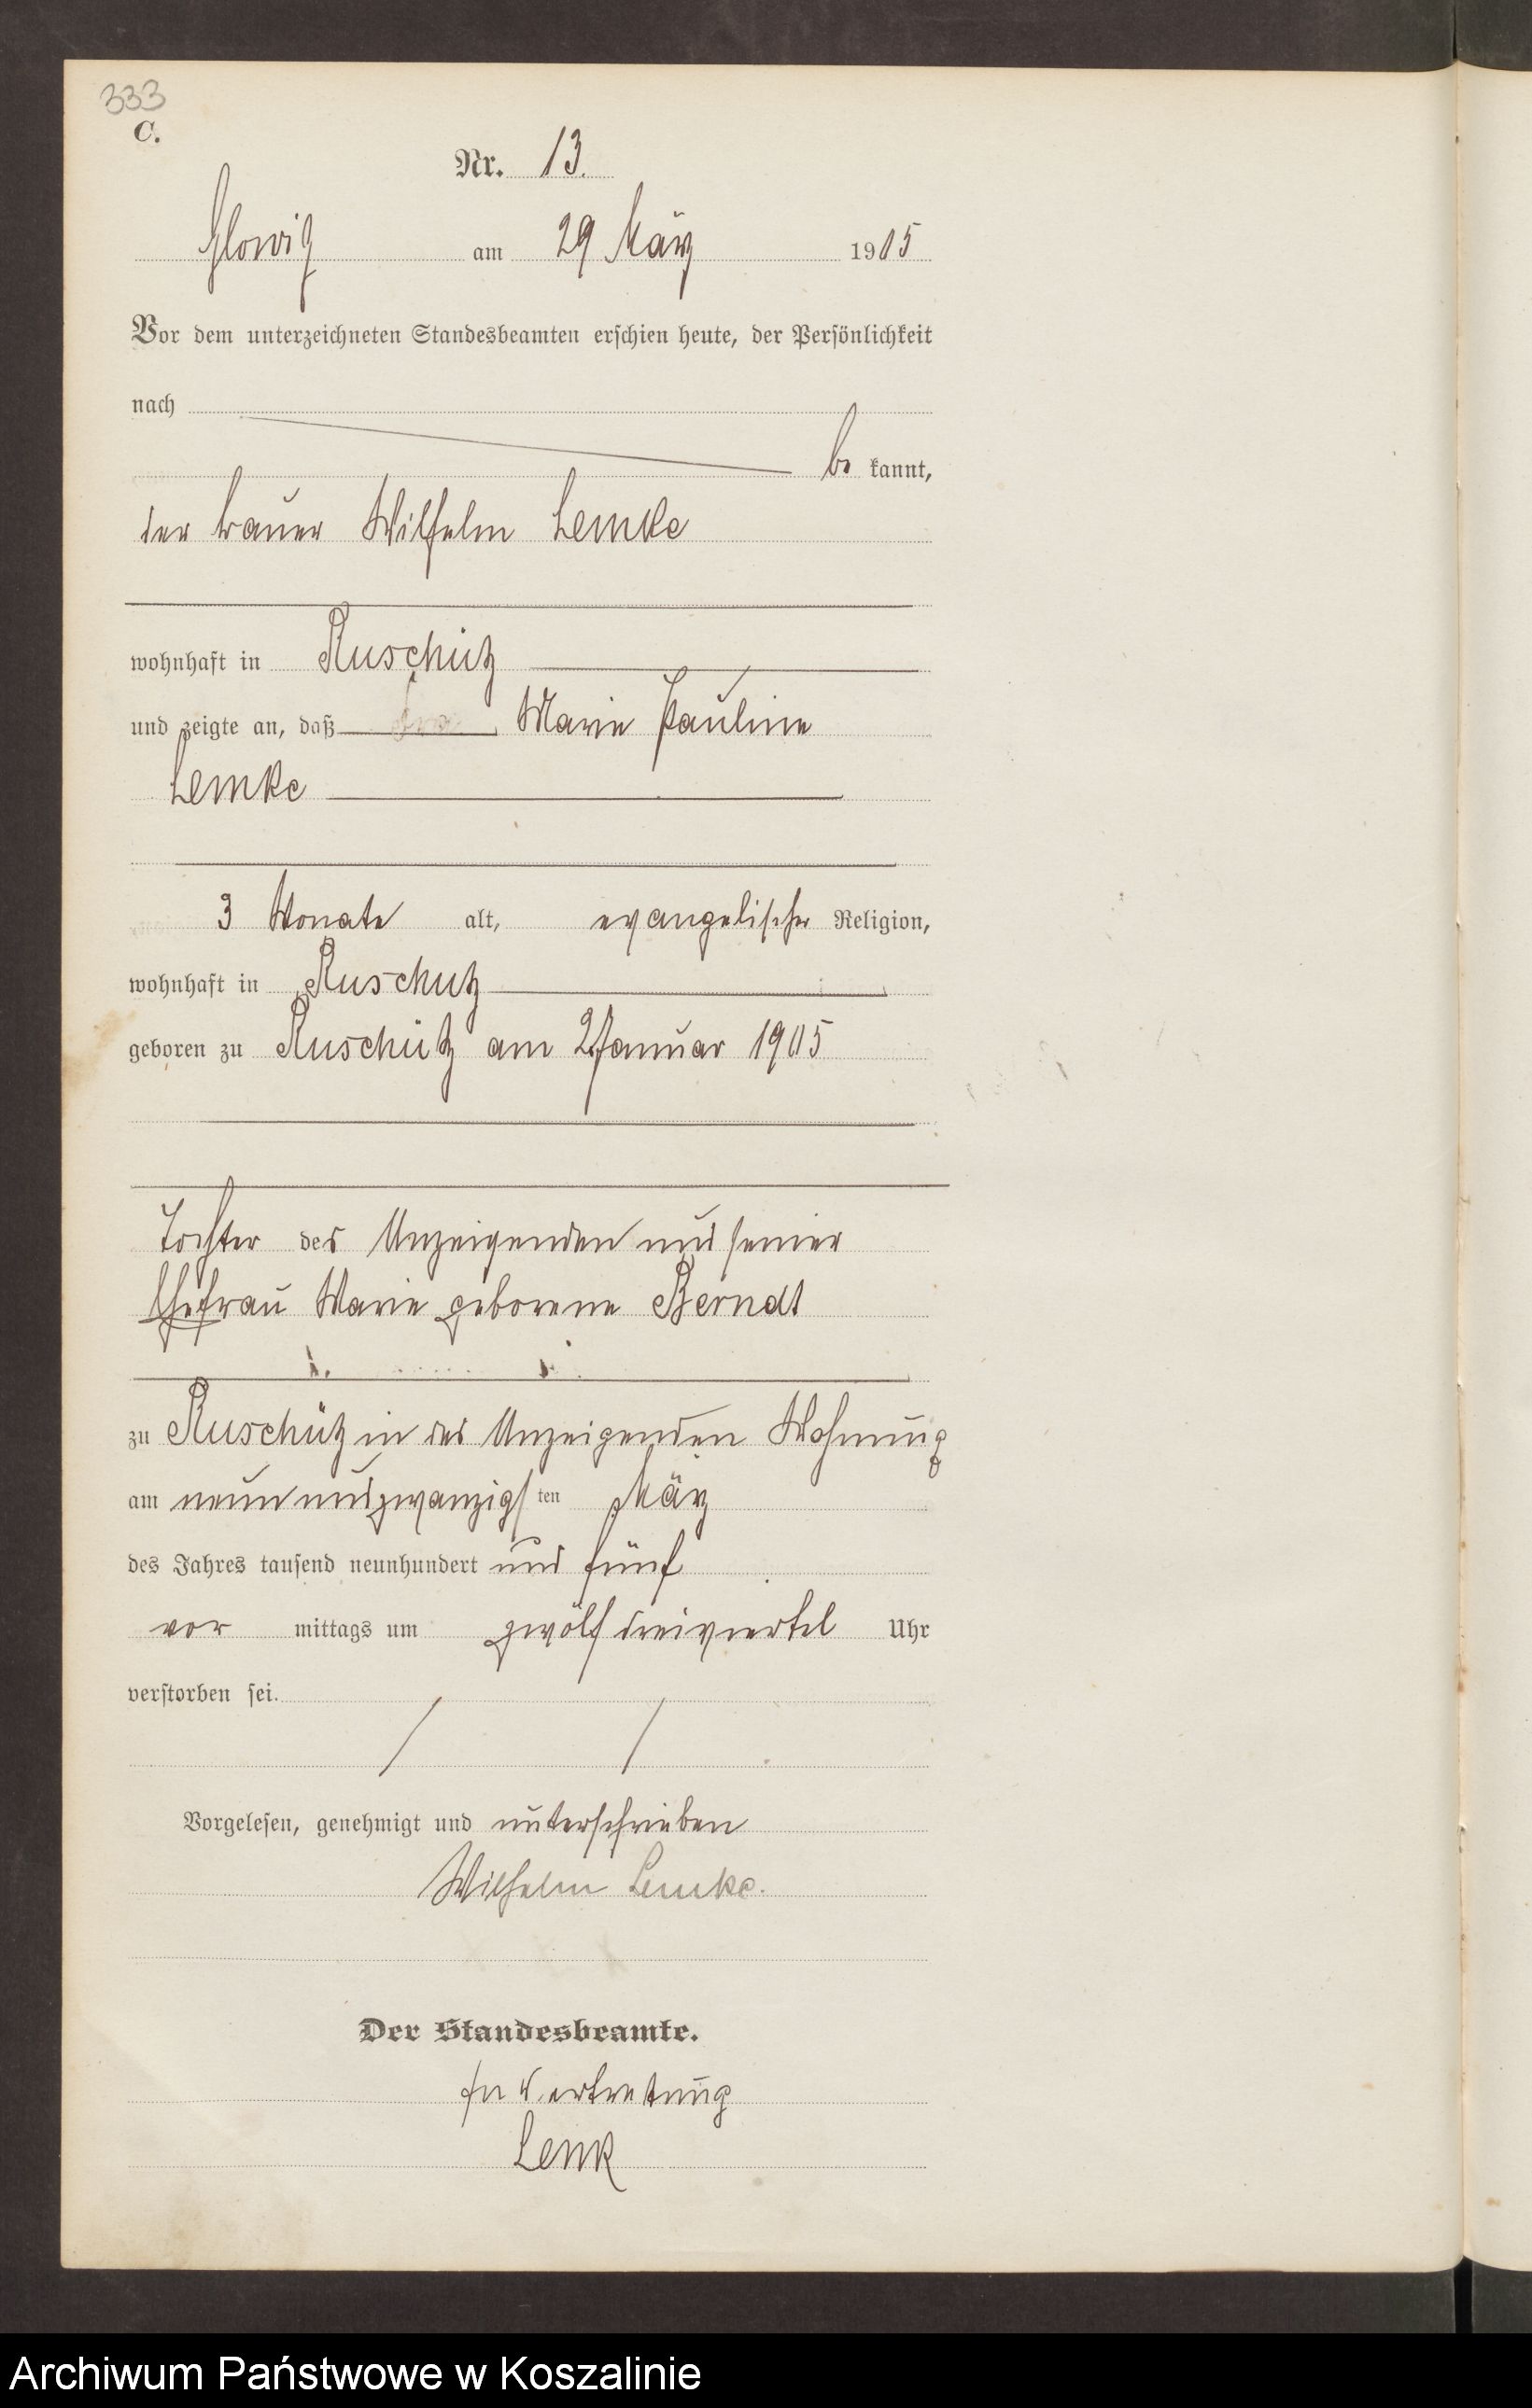 333
C.
Nr. 13.
Glowitz am 29 März 1905
Vor dem unterzeichneten Standesbeamten erschien heute, der Persönlichkeit
nach
be kannt,
der Bauer Wilhelm Lemke
wohnhaft in Ruschütz
und zeigte an, daß Marie Pauline
Lemke
3 Monate alt, evangelischer Religion,
wohnhaft in Ruschütz
geboren zu Ruschütz am 2 Januar 1905
Tochter des Anzeigenden und seiner
Ehefrau Marie geborene Berndt
zu Ruschütz in des Anzeigenden Wohnung
am neunundzwanzigsten März
des Jahres tausend neunhundert und fünf
vor mittags um zwölf dreiviertel Uhr
verstorben sei.
Vorgelesen, genehmigt und unterschrieben
Wilhelm Lemke.
Der Standesbeamte.
In Vertretung
Lenk
Archiwum Państwowe w Koszalinie